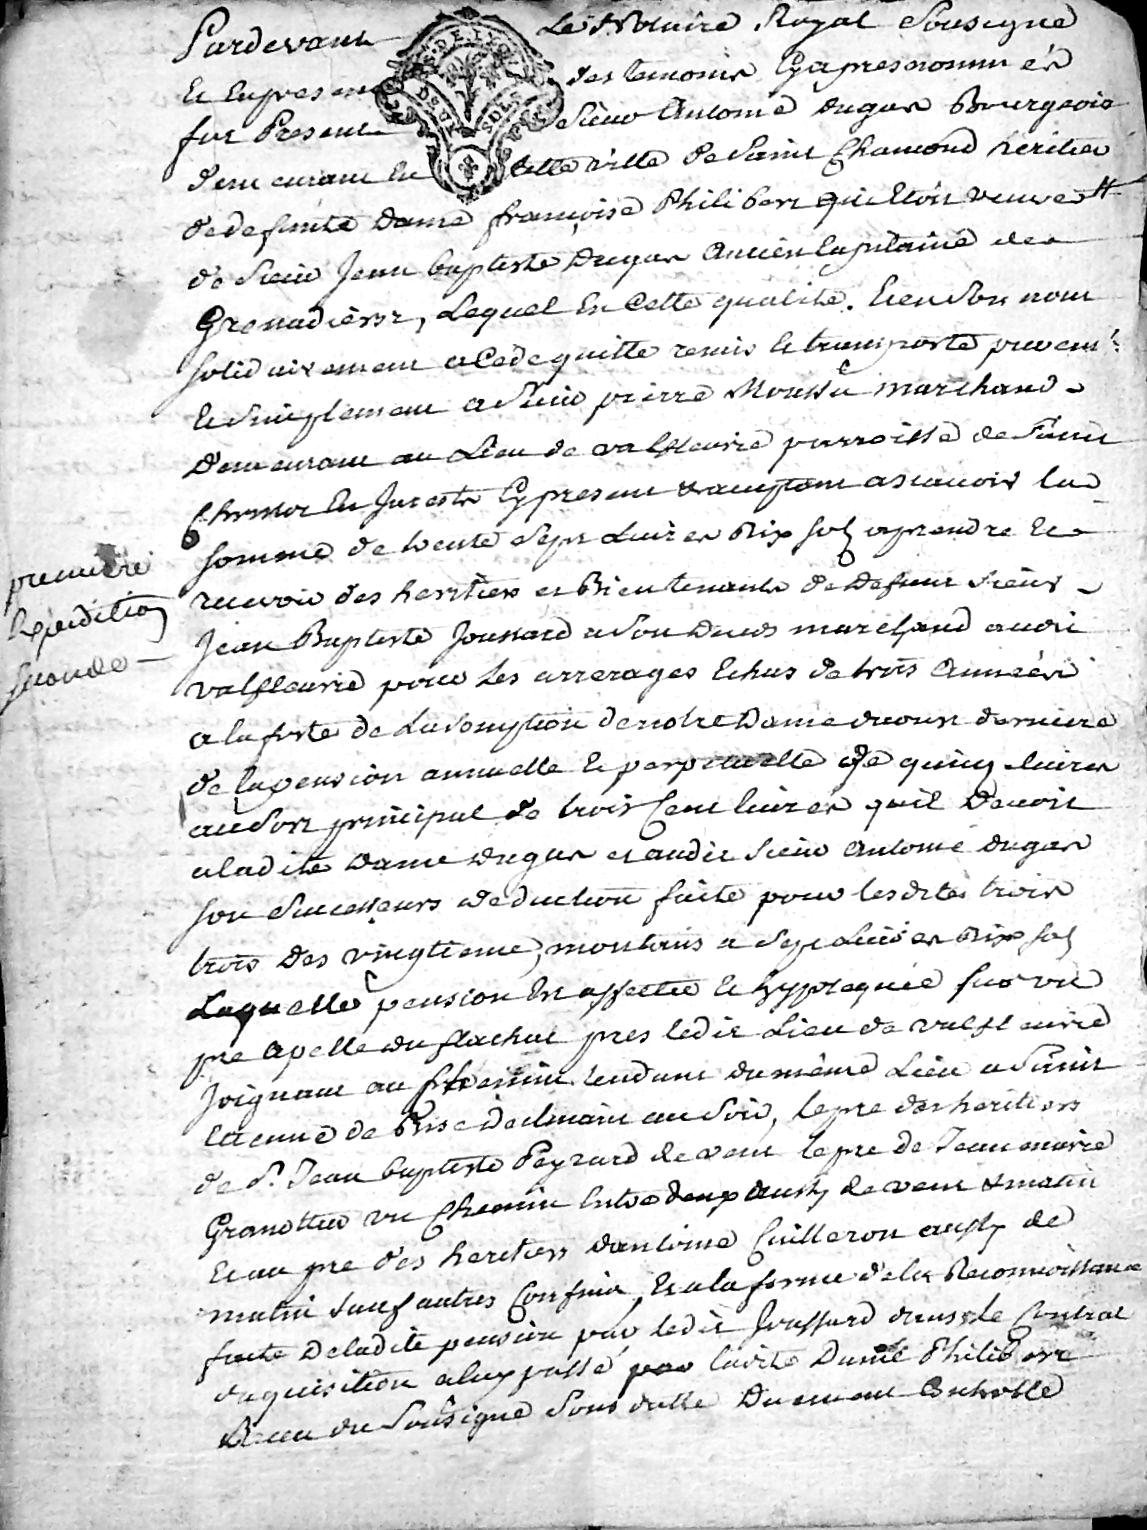 Pardevant Le Notaire Royal Sousigné
et en presence des temoins cy apres nommés
fut Present Sieur Antoine dugas Bourgeois
demeurant en cette ville de Saint Chamond heritier
de defunte Dame françoise Philibert qui etoit veuve
de Sieur Jean baptiste Dugas Ancien Capitaine des
Grenadiers, Lequel en cette qualité. et en son nom
solidairement a cedé quitté remis et transporté purem.t
et Simplement a Sieur pierre Moussu marchand
demeurant au Lieu de valfleurie parroisse de Saint
Christot en Jarest cy present & acceptant a scavoir la
somme de trente Sept Livres Dix sols a prendre et
recevoir des heritiers et Bientenants de Defunt Sieur
Jean Baptiste Joussard a son vivant marchand audit
valfleurie pour les arrerages Echus de trois Années
a la feste de Lasomption de notre Dame d'aoust derniere
de la pension annuelle et perpetuelle de quinze livres
au Sort principal de trois Cent livres quil Devoit
a ladite Dame Dugas et audit Sieur Antoine dugas
son Successeurs deduction faite pour lesdites trois
trois Des vingtieme, montants a Sept Livres Dix sols
Laquelle pension est affectée et hyppotequée sur un
pre apellé du flachat pres ledit Lieu de valfleurie
Joignant au chemin tendant du même Lieu a Saint
Etienne de Bise declinant au Soir, le pre des heritiers
de S.r Jean baptiste Peyrard de vent le pre de Jean marie
Granottier un Chemin Entre deux aussy de vent & matin
et au pre des heritiers dantoine Guilleron aussy de
matin sauf autres Confins, et a la forme de la Reconnoissance
faite de ladite pension par ledit Joussard dans le Contrat
daquisition a luy passé par ladite Dame Philibert
Recu du Sousigné Sous datte Duement Controllé
premiere
Expedition
seconde